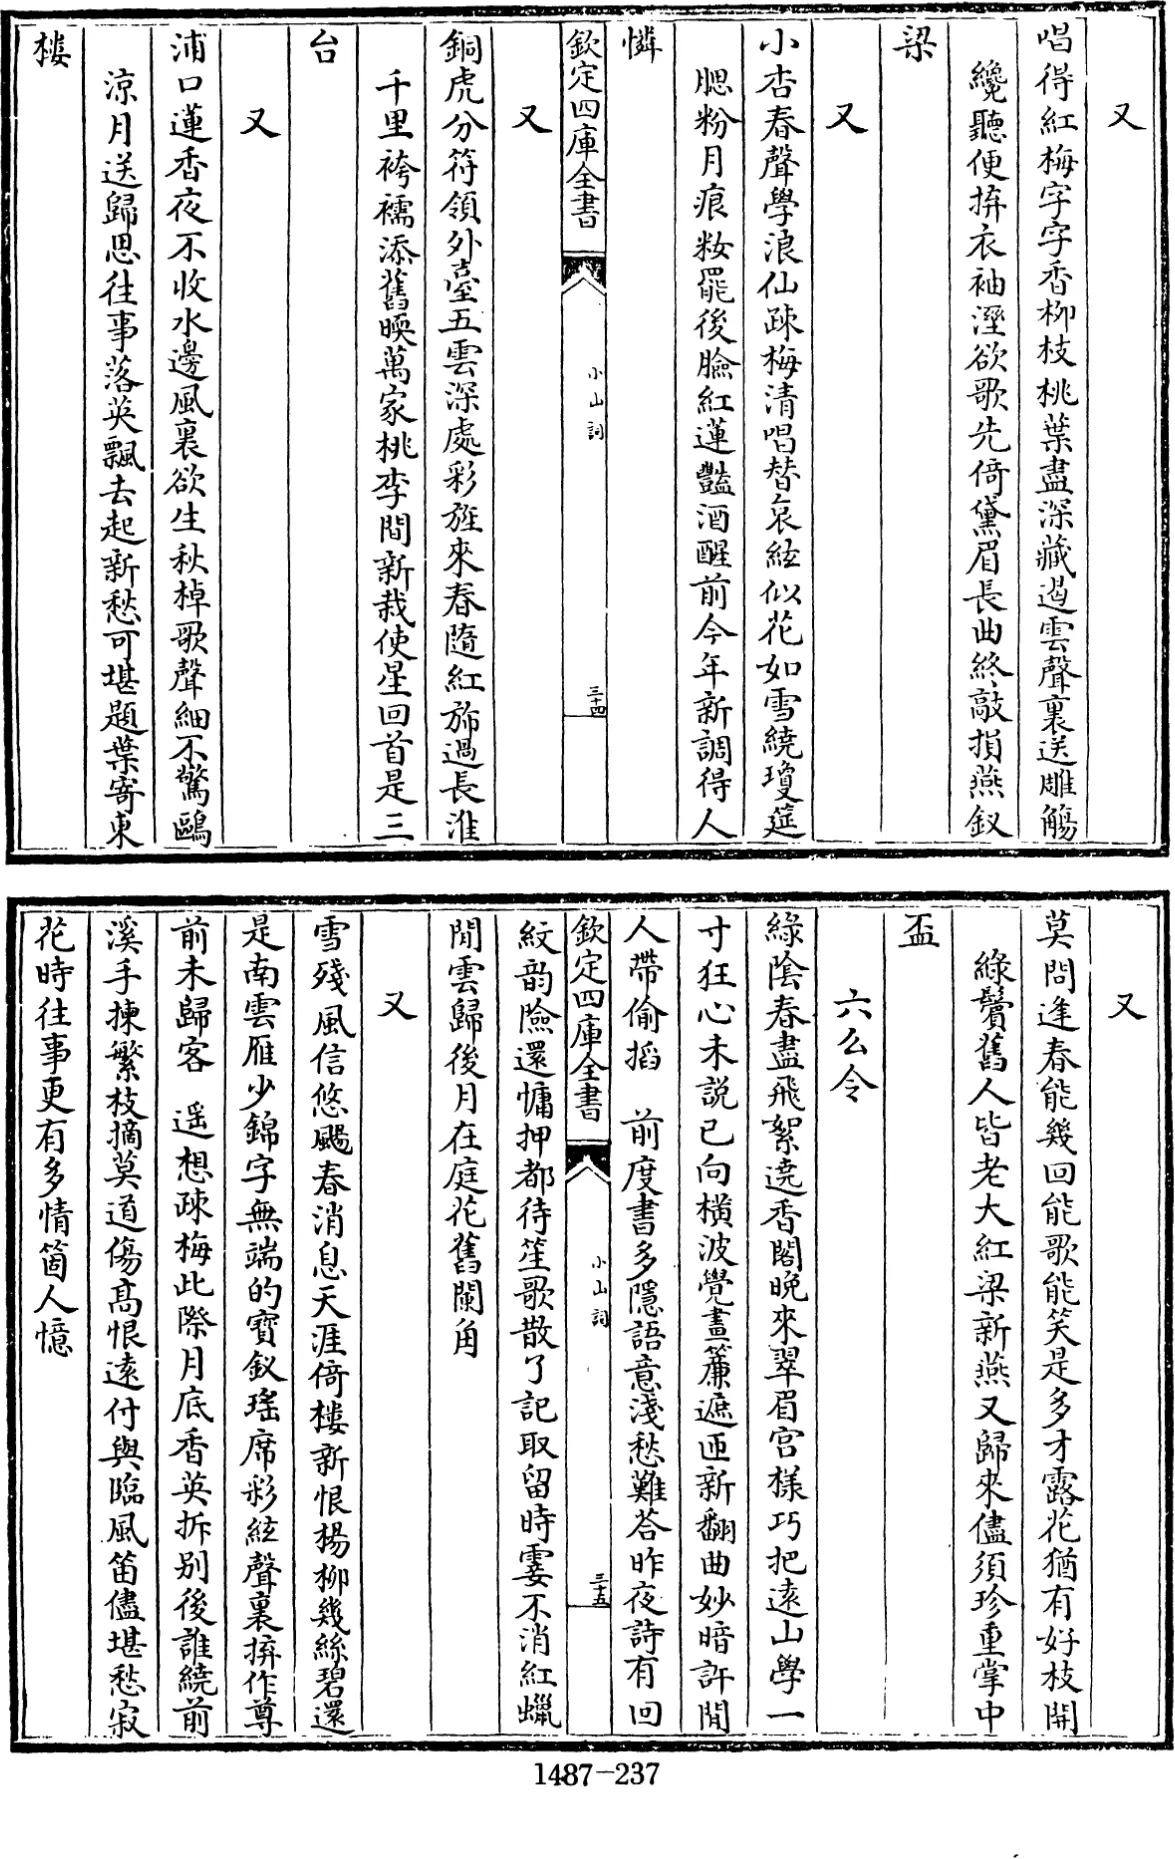 又
唱得紅梅字字香柳枝桃葉盡深藏遏雲聲裏送雕觴
纔聽便拚衣袖溼欲歌先倚黛眉長曲終敲損燕釵
梁
又
小杏春聲學浪仙疎梅清唱替哀絃似花如雪繞瓊筵
腮粉月痕妝罷後臉紅蓮豔酒醒前今年新調得人
憐
欽定四庫全書
小山詞
三十四
又
銅虎分符領外臺五雲深處彩旌來春隨紅旆過長淮
千里袴襦添舊暎萬家桃李間新栽使星回首是三
台
又
浦口蓮香夜不收水邊風裏欲生秋棹歌聲細不驚鷗
涼月送歸思往事落英飄去起新愁可堪題葉寄東
樓
又
莫問逢春能幾回能歌能笑是多才露花猶有好枝開
綠鬢舊人皆老大紅梁新燕又歸來儘須珍重掌中
盃
六么令
綠陰春盡飛絮遶香閣晚來翠眉宮樣巧把遠山學一
寸狂心未說已向橫波覺畫簾遮匝新翻曲妙暗許閒
人帶偷搯 前度書多隱語意淺愁難荅昨夜詩有回
欽定四庫全書
小山詞
三十五
紋韵險還慵押都待笙歌散了記取留時霎不消紅蠟
閒雲歸後月在庭花舊闌角
又
雪殘風信悠颺春消息天涯倚樓新恨楊柳幾絲碧還
是南雲雁少錦字無端的寶釵瑤席彩絃聲裏拚作尊
前未歸客 遥想疎梅此際月底香英拆别後誰繞前
溪手揀繁枝摘莫道傷髙恨遠付與臨風笛儘堪愁寂
花時往事更有多情箇人憶
1487—237